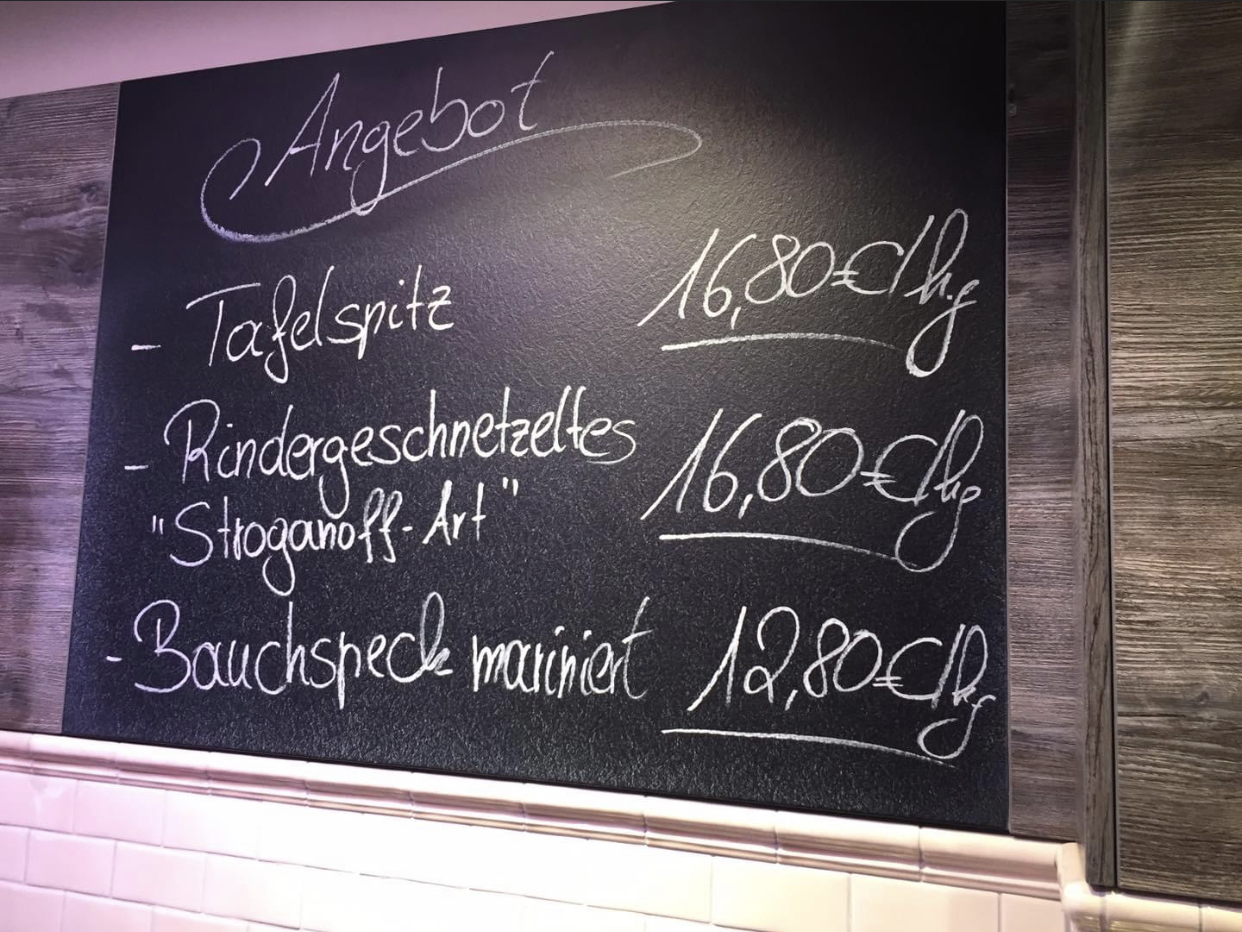 Angebot
- Tafelspitz 16,80€/kg
- Rindergeschnetzeltes 16,80€/kg
"Stroganoff-Art"
- Bauchspeck mariniert 12,80€/kg